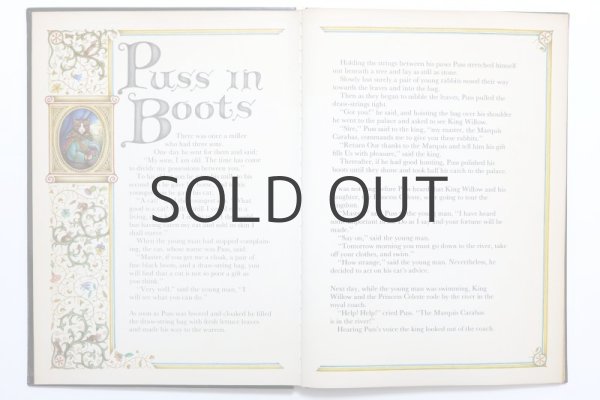 Puss in
Boots
There was once a miller
who had three sons.
One day he sent for them and said:
"My sons, I am old. The time has come
to divide my possessions between you."
When the young man had stopped complain-
ing, the cat, whose name was Puss, said:
"Master, if you get me a cloak, a pair of
fine black boots, and a draw-string bag, you
will find that a cat is not so poor a gift as
you think."
"Very well," said the young man, "I
will see what you can do."
As soon as Puss was booted and cloaked he filled
the draw-string bag with fresh lettuce leaves
and made his way to the warren.
Holding the strings between his paws Puss stretched himself
out beneath a tree and lay as still as stone.
Slowly but surely a pair of young rabbits nosed their way
towards the leaves and into the bag.
Then as they began to nibble the leaves, Puss pulled the
draw-strings tight.
"Got you!" he said, and hoisting the bag over his shoulder
he went to the palace and asked to see King Willow.
"Sire," Puss said to the king, "my master, the Marquis
Carabas, commands me to give you these rabbits."
"Return Our thanks to the Marquis and tell him his gift
fills Us with pleasure," said the king.
Thereafter, if he had good hunting, Puss polished his
boots until they shone and took half his catch to the palace.
SOLD OUT
"Say on," said the young man.
"Tomorrow morning you must go down to the river, take
off your clothes, and swim."
"How strange," said the young man. Nevertheless, he
decided to act on his cat's advice.
Next day, while the young man was swimming, King
Willow and the Princess Colette rode by the river in the
royal coach.
"Help! Help!" cried Puss. "The Marquis Carabas
is in the river!"
Hearing Puss's voice the king looked out of the coach.